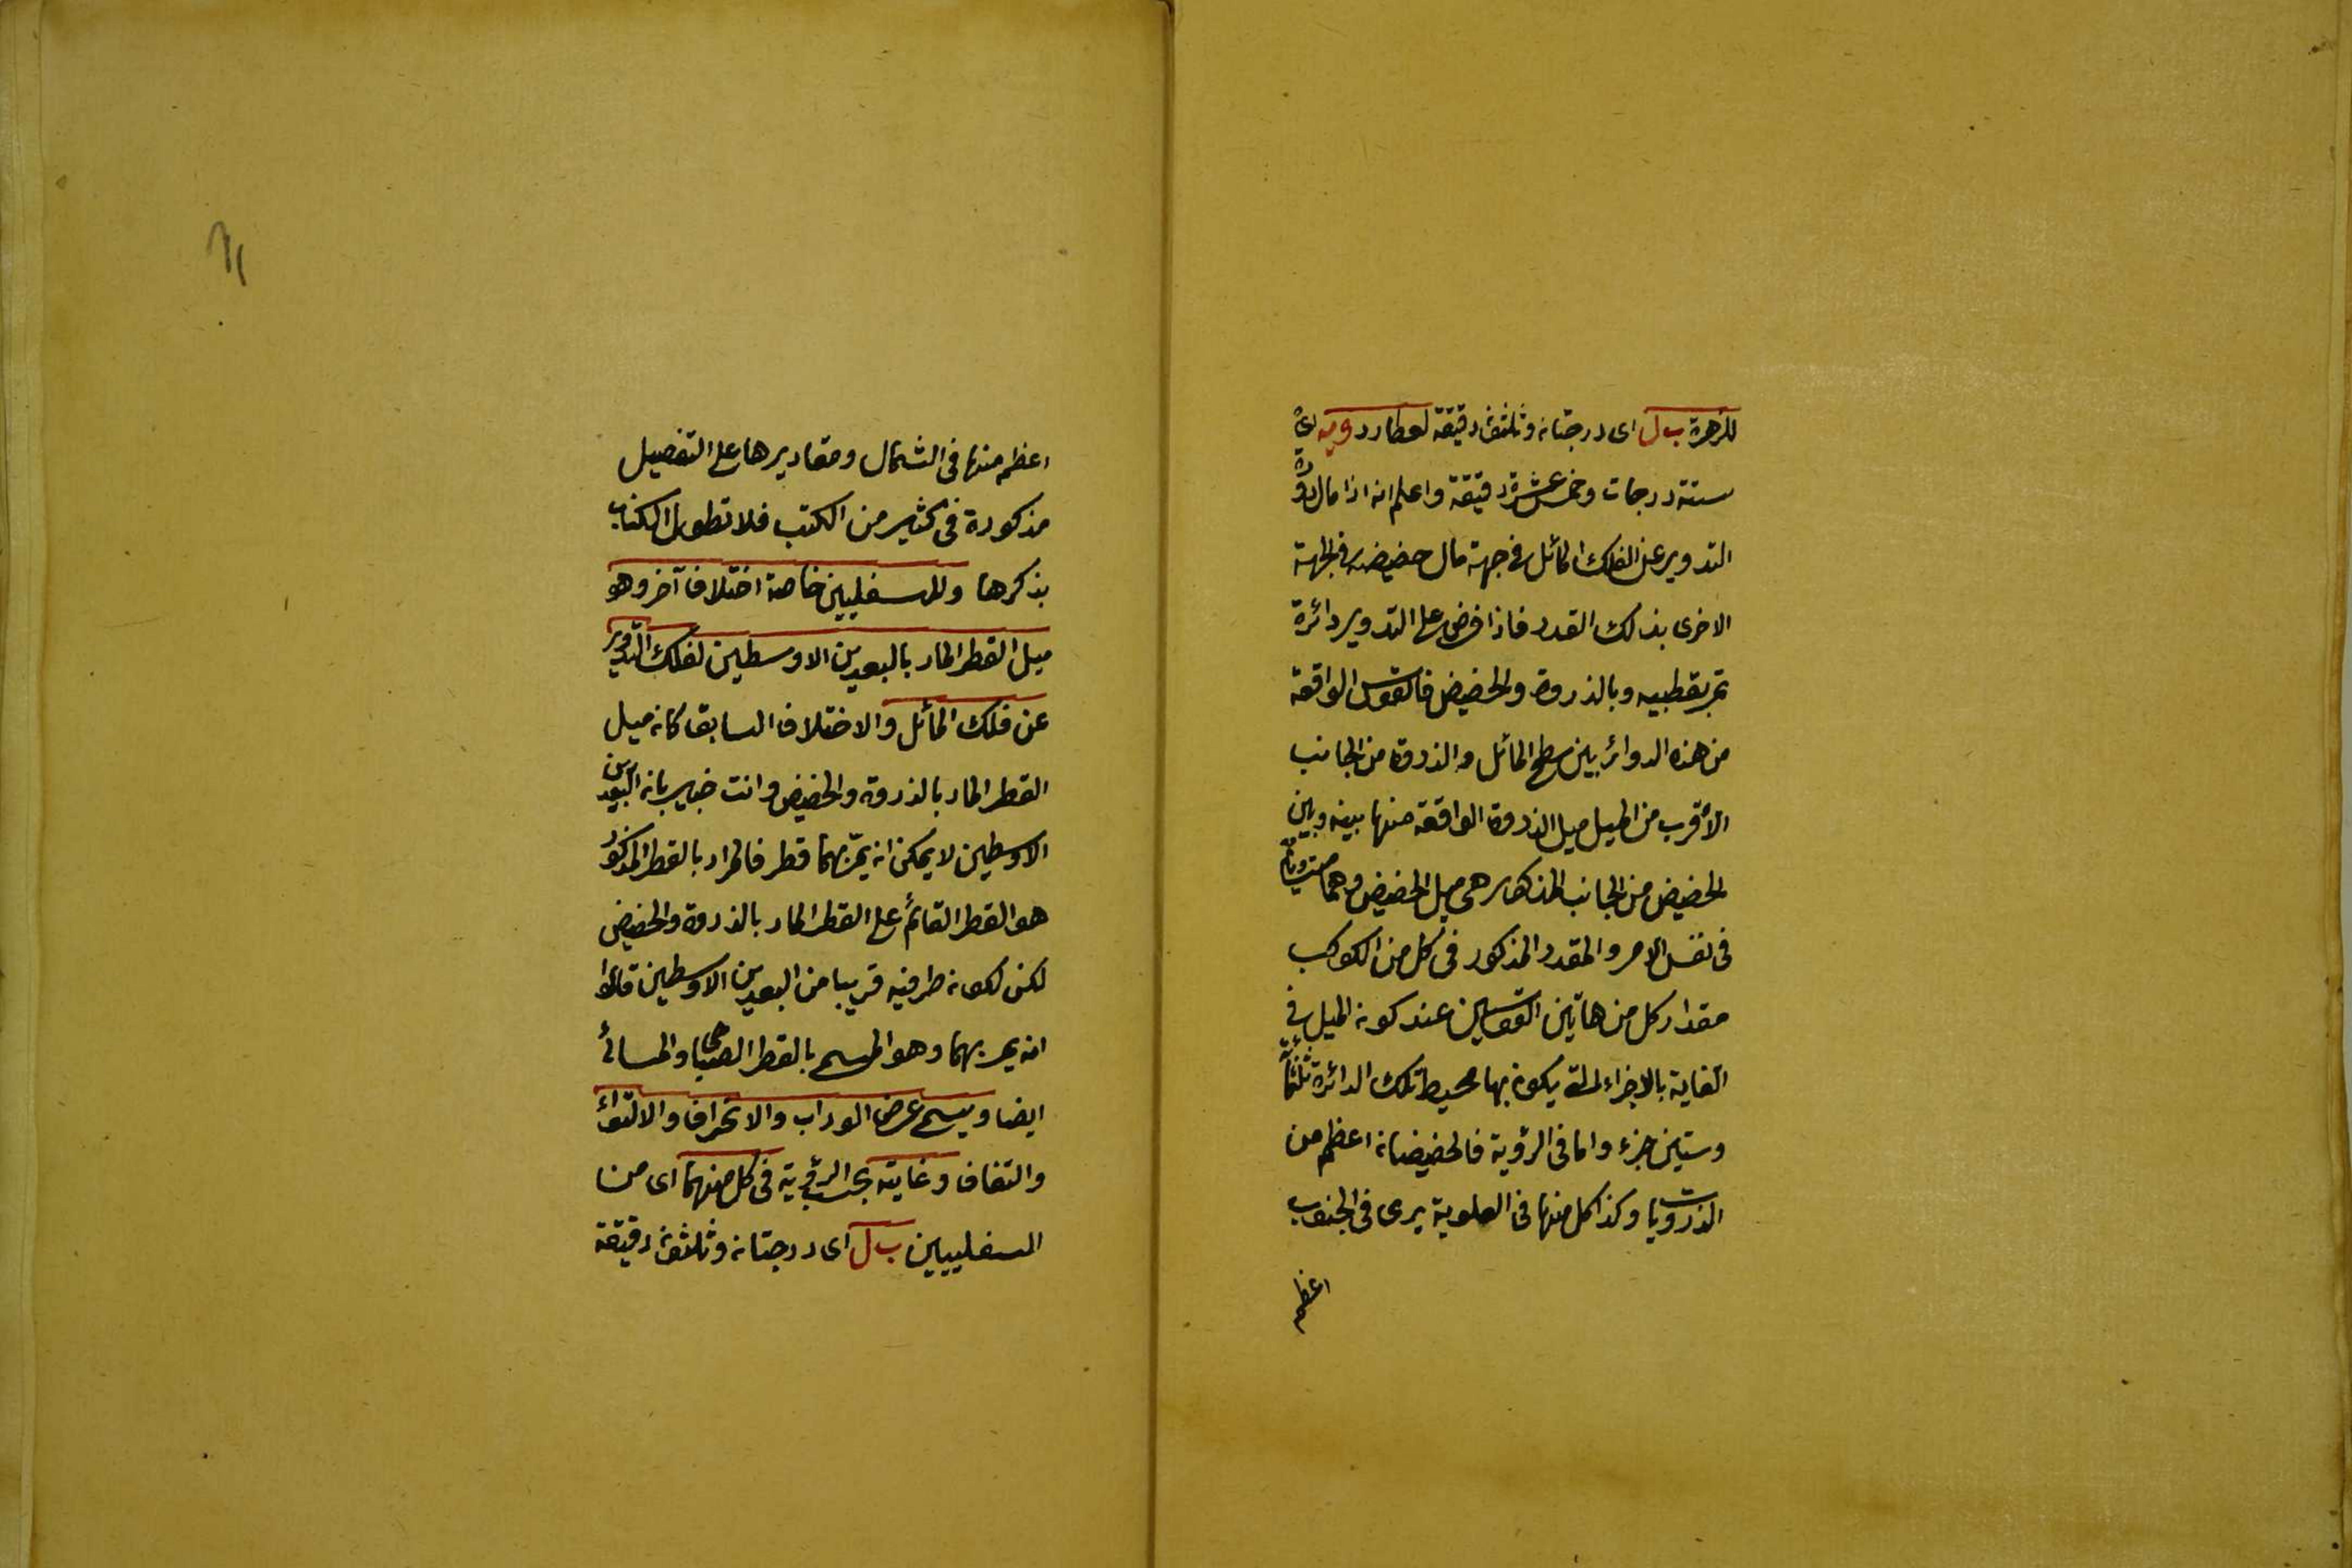 للزهرة ب ل اى درجتان وثلثون دقيقة لعطارد و يه اى
ستة درجات وخمس عشرة دقيقة واعلم انه اذا مال ذروة
التدوير عن الفلك المائل فى جهة مال حضيضه فى الجهة
الاخرى بذلك القدر فاذا فرض على التدوير دائرة
تمر بقطبيه وبالذروة والحضيض فالقوس الواقعة
من هذه الدوائر بين سطح المائل والذروة من الجانب
الأقرب من الميل ميل الذروة الواقعة منها بينه وبين
الحضيض من الجانب المذكور هى ميل الحضيض وهما متساويان
فى نفس الامر والمقدر المذكور فى كل من الكوكب
مقدار كل من هاتين القوسين عند كون الميل فى
الغاية بالاجزاء التى يكون بها محيط تلك الدائرة ثلثمائة
وستين جزء واما فى الرؤية فالحضيضان اعظم من
الذرويات وكذا كل منها فى العلوية يرى فى الجنوب
اعظم
اعظم منها فى الشمال ومقاديرها على التفصيل
مذكورة فى كثير من الكتب فلا تطول الكتاب
بذكرها وللسفليين خاصة اختلاف آخر وهو
ميل القطر المار بالبعدين الاوسطين لفلك التدوير
عن فلك المائل والاختلاف السابق كان ميل
القطر المار بالذروة والحضيض وانت خبير بان البعدين
الاوسطين لا يمكن ان يمر بهما قطر فالمراد بالقطر المذكور
هو القطر القائم على القطر المار بالذروة والحضيض
لكن لكون طرفيه قريبا من البعدين الاوسطين قالوا
انه يمر بهما وهو المسمى بالقطر الصباحى والمسائى
ايضا ويسمى عرض الوراب والانحراف والالتواء
والتفاف وغايته بحسب الرؤية فى كل منهما اى من
السفليين ب ل اى درجتان وثلثون دقيقة